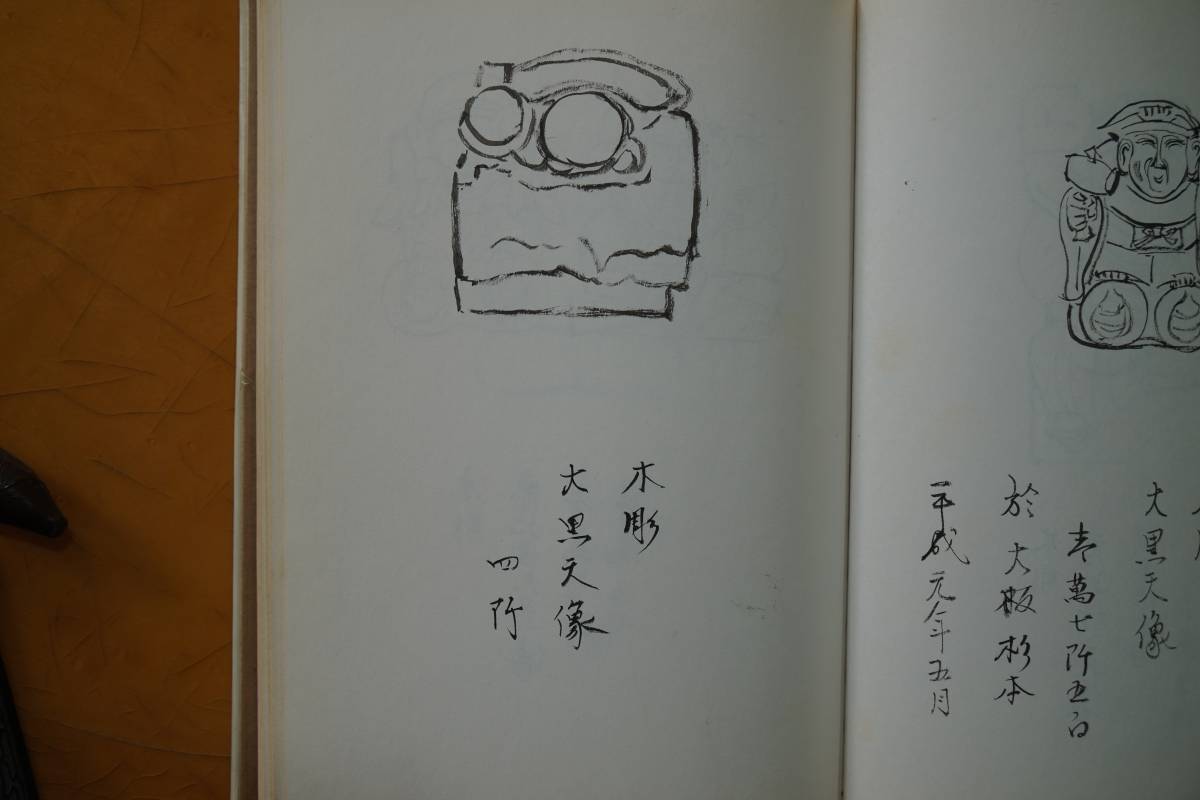 大黒天像
壱萬七阡五百
於大板杉本
平成元年五月
木彫
大黒天像
四阡